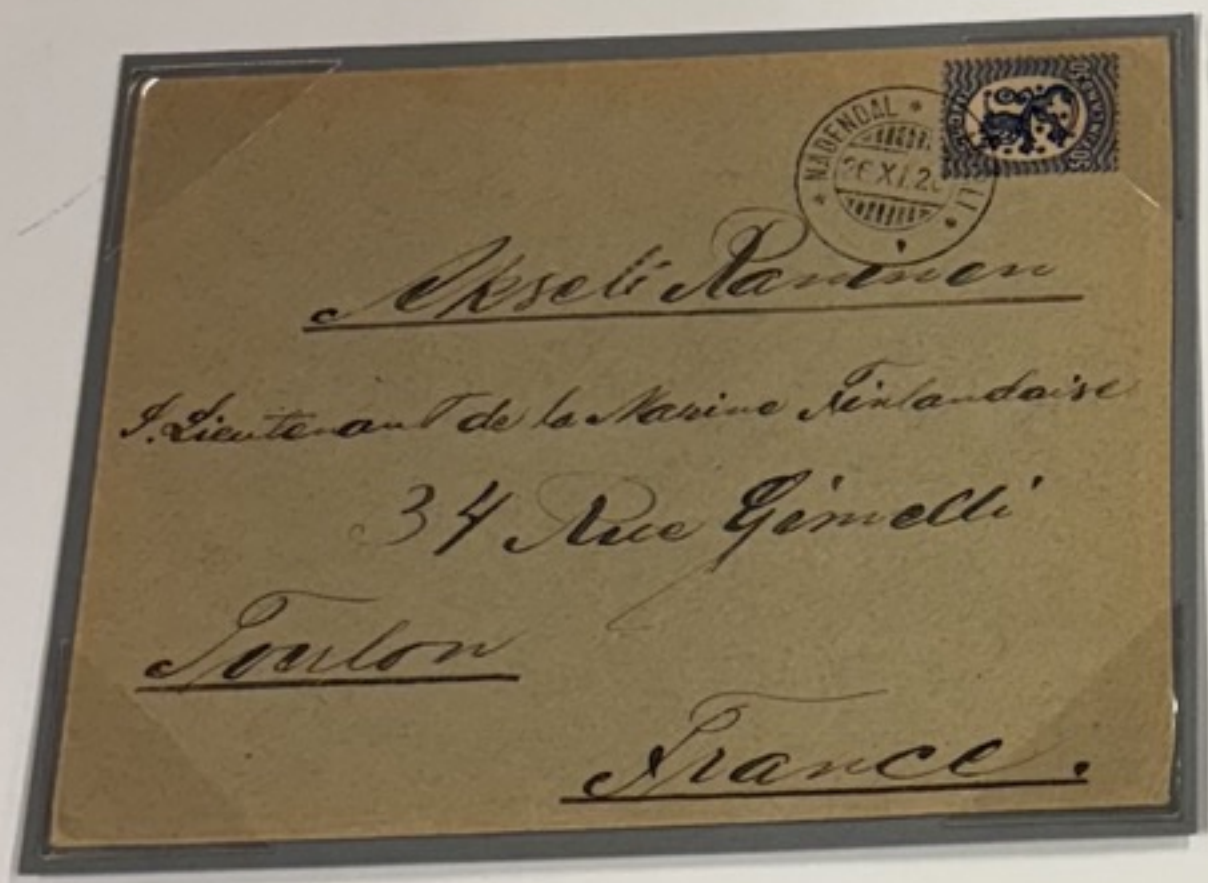 NÅDENDAL
26 XI.2
Akseli Ranninen
S. Lieutenant de la Marine Finlandaise
34 Rue Gimelli
Toulon
France.